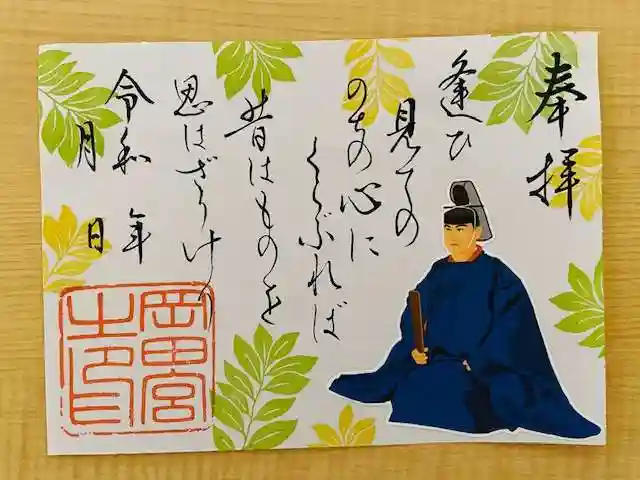 奉拝
逢ひ
見ての
のちの心に
くらぶれば
昔はものを
思はざりけり
令和 年
月 日
岡田宮
之印